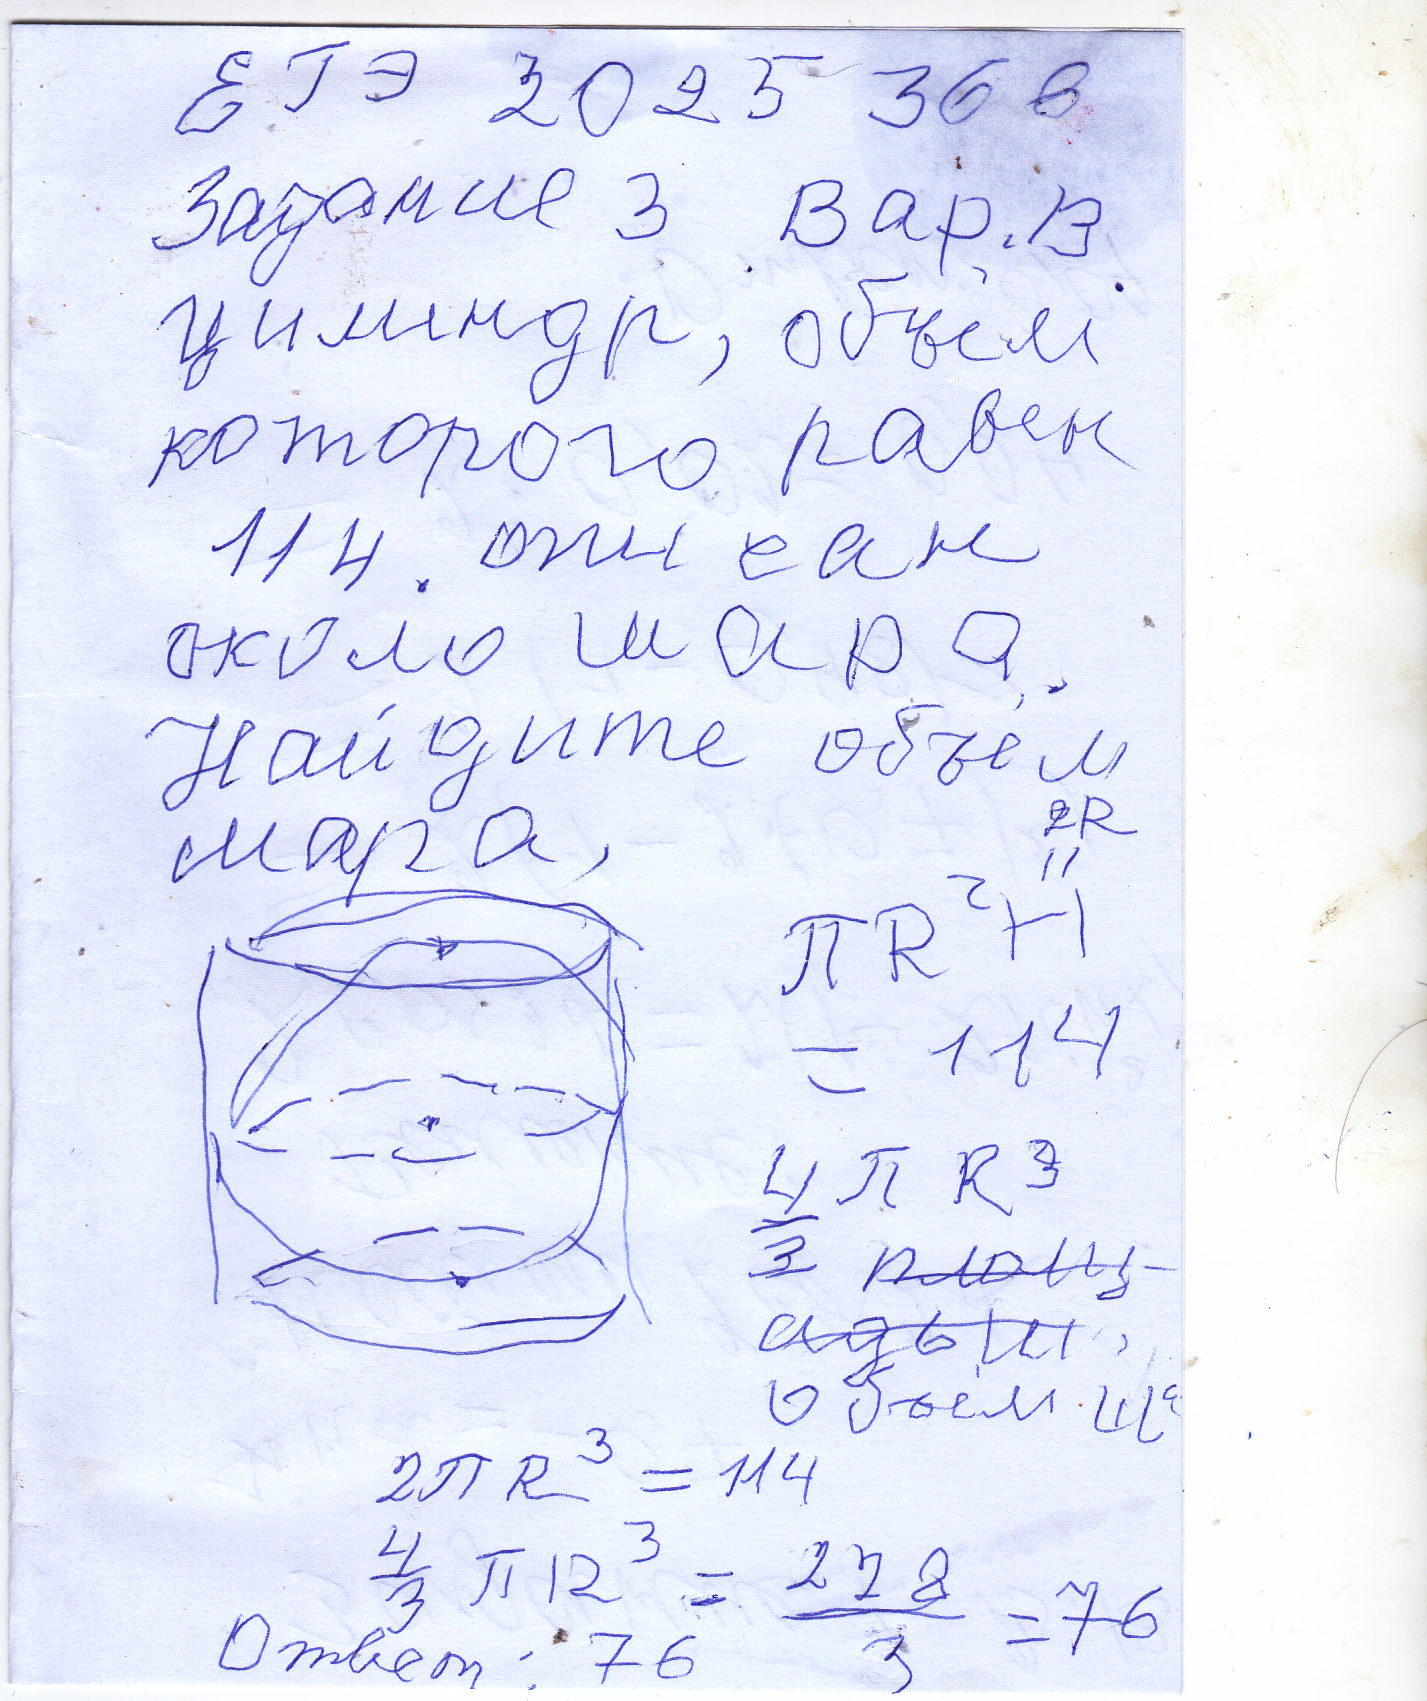 ЕГЭ 2025 36 в
Задание 3 Вар. 13
цилиндр, объём
которого равен
114. описан
около шара.
Найдите объём
шара,
2R
"
πR²H
= 114
4/3 πR³
площ-
адь ш.
объем ш
2πR³ = 114
4/3 πR³ = 228/3 = 76
Ответ: 76